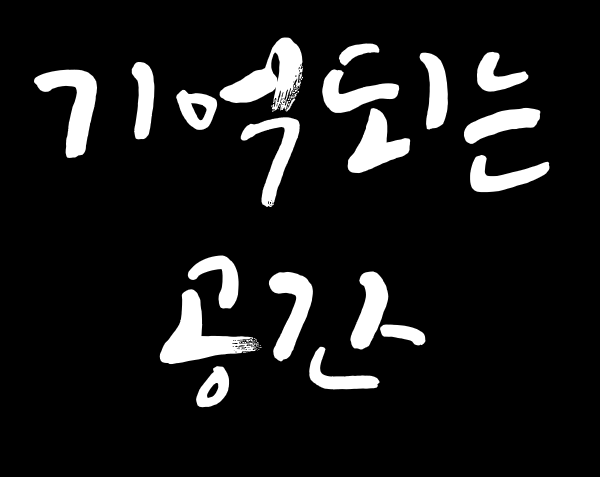 기억되는
공간